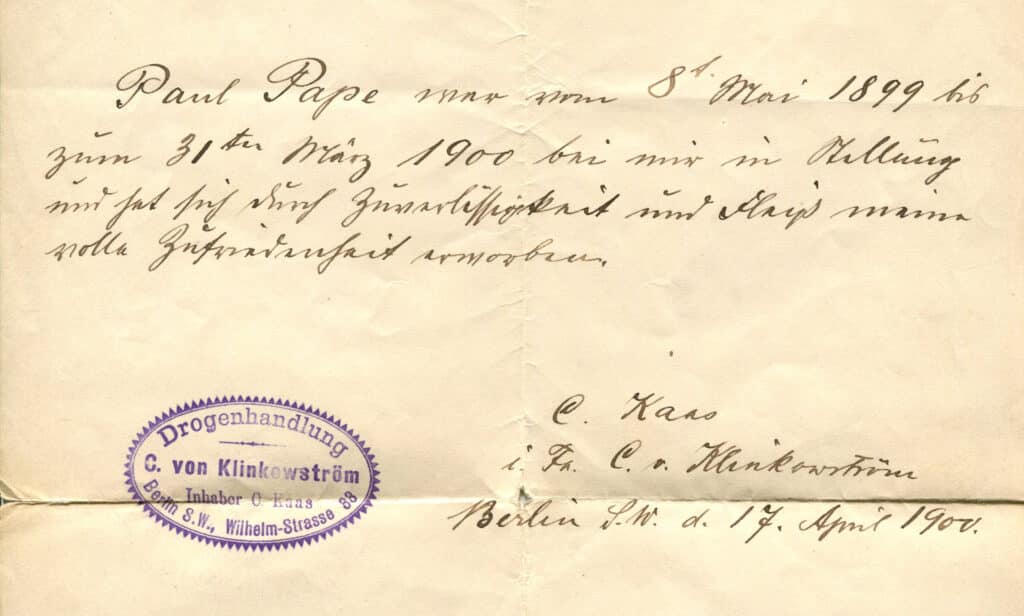 Paul Pape war vom 8t. Mai 1899 bis
zum 31ten März 1900 bei mir in Stellung
und hat sich durch Zuverlässigkeit und Fleiß meine
volle Zufriedenheit erworben.
C. Kaas
i. Fa. C. v. Klinkowström
Berlin S.W. d. 17. April 1900.
Drogenhandlung
C. von Klinkowström
Inhaber C. Kaas
Berlin S.W., Wilhelm-Strasse 88